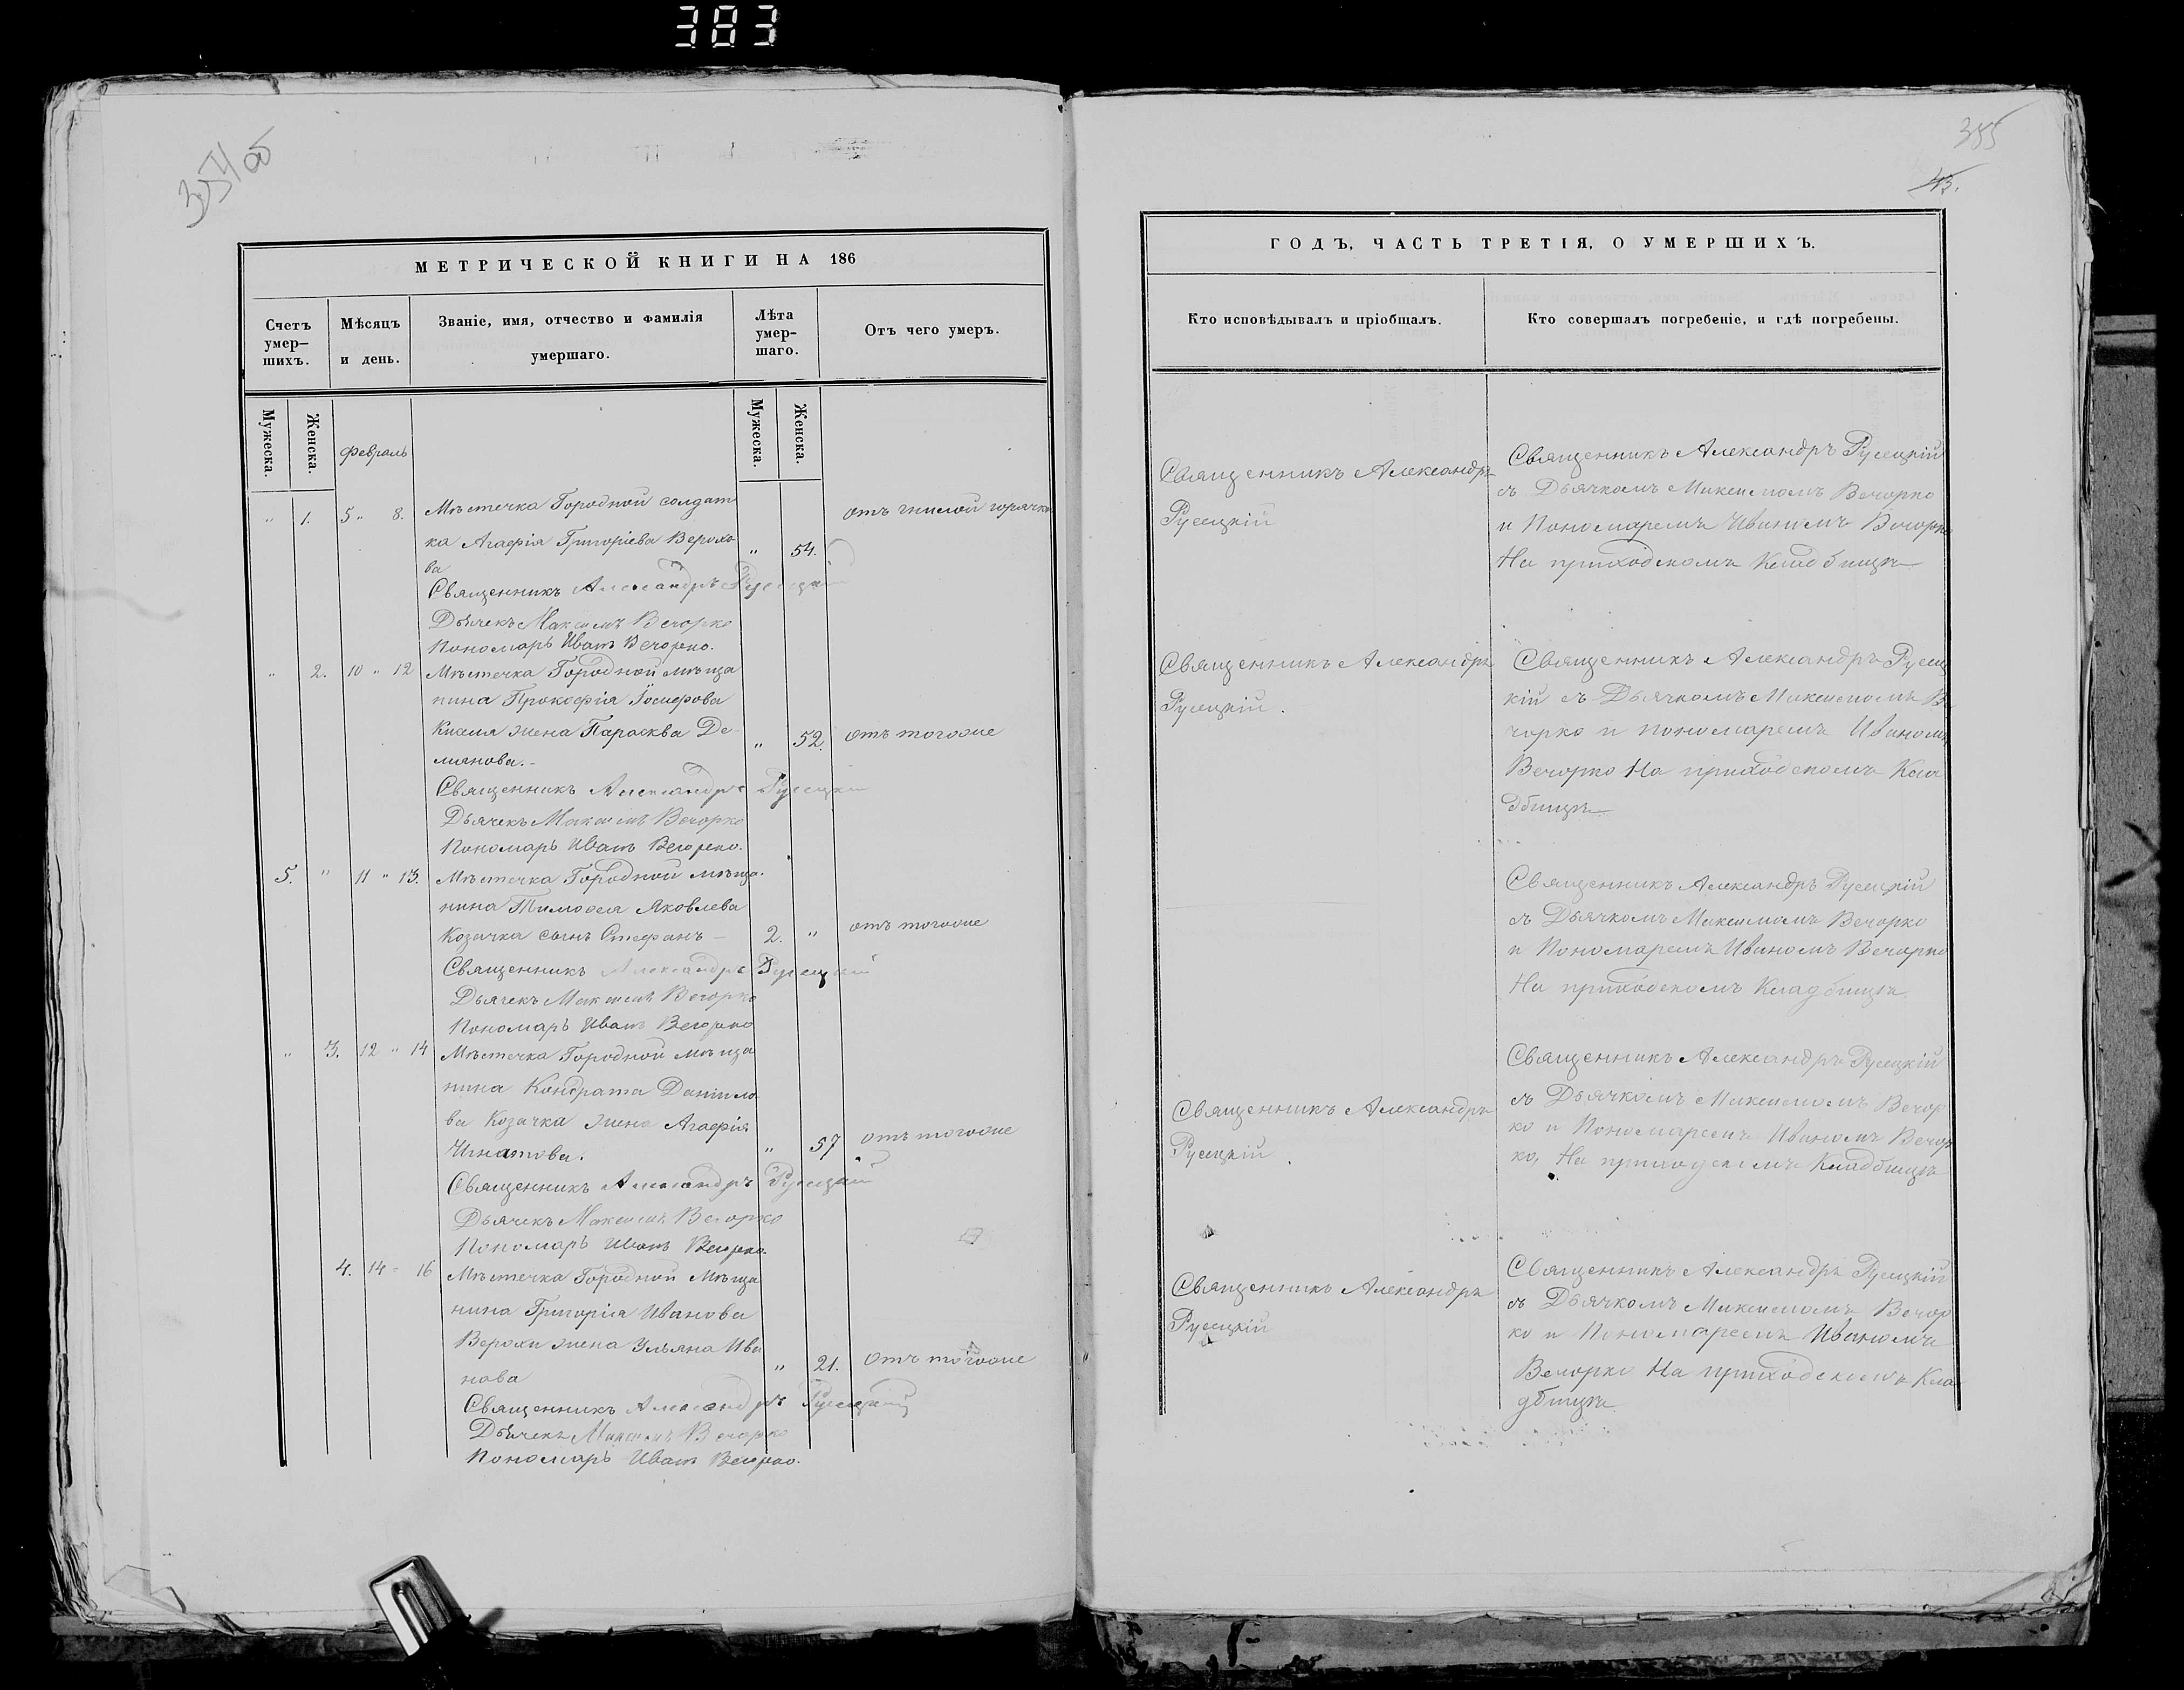 383
354 об
МЕТРИЧЕСКОЙ КНИГИ НА 186
Счетъ умер-
шихъ.
Мѣсяцъ
и день.
Званіе, имя, отчество и фамилія
умершаго.
Лѣта
умер-
шаго.
Отъ чего умеръ.
Мужеска.
Женска.
Февраль
Мужеска.
Женска.
" 1. 5 " 8. Мѣстечка Городной солдат
отъ гнилой горячки
ка Агафія Григоріева Верохо
" 54.
ва
Священникъ Александръ Русецкій
Дьячекъ Максимъ Вечорко
Пономарь Иванъ Вечорко.
" 2. 10 " 12 Мѣстечка Городной мѣща
нина Прокофія Іосифова
Кисля жена Парасква Де-
" 52. отъ тогоже
мянова.-
Священникъ Александръ Русецкій
Дьячекъ Максимъ Вечорко
Пономарь Иванъ Вечорко.
5. " 11 " 13. Мѣстечка Городной мѣща-
нина Тимофея Яковлева
Козачка сынъ Стефанъ -
2. " отъ тогоже
Священникъ Александръ Русецкій
Дьячекъ Максимъ Вечорко
Пономарь Иванъ Вечорко
" 3. 12 " 14 Мѣстечка Городной мѣща
нина Кондрата Данило
ва Козачка жена Агафія
Игнатова.
" 57 отъ тогоже
Священникъ Александръ Русецкій
Дьячекъ Максимъ Вечорко
Пономарь Иванъ Вечорко.
4. 14 - 16 Мѣстечка Городной Мѣща
нина Григорія Иванова
Верохи жена Ульяна Ива
" 21. Отъ тогоже
нова
Священникъ Александръ Русецкій
Дьячекъ Максимъ Вечорко
Пономарь Иванъ Вечорко.
355
43.
ГОДЪ, ЧАСТЬ ТРЕТІЯ, О УМЕРШИХЪ.
Кто исповѣдывалъ и пріобщалъ.
Кто совершалъ погребеніе, и гдѣ погребены.
Священникъ Александръ
Русецкій
Священникъ Александръ Русецкій
съ Дьячкомъ Максимомъ Вечорко
и Пономаремъ Иваномъ Вечорко
На приходскомъ Кладбищѣ
Священникъ Александръ
Русецкій.
Священникъ Александръ Русец
кій съ Дьячкомъ Максимомъ Ве
чорко и пономаремъ Иваномъ
Вечорко На приходскомъ Кла
дбищѣ
Священникъ Александръ Русецкій
съ Дьячкомъ Максимомъ Вечорко
и Пономаремъ Иваномъ Вечорко
На приходскомъ Кладбищѣ.
Священникъ Александръ
Русецкій.
Священникъ Александръ Русецкій
съ Дьячкомъ Максимомъ Вечор
ко и Пономаремъ Иваномъ Вечор
ко, На приходскомъ Кладбищѣ
Священникъ Александръ
Русецкій
Священникъ Александръ Русецкій
съ Дьячкомъ Максимомъ Вечор
ко и Пономаремъ Иваномъ
Вечорко На приходскомъ Кла
дбищѣ